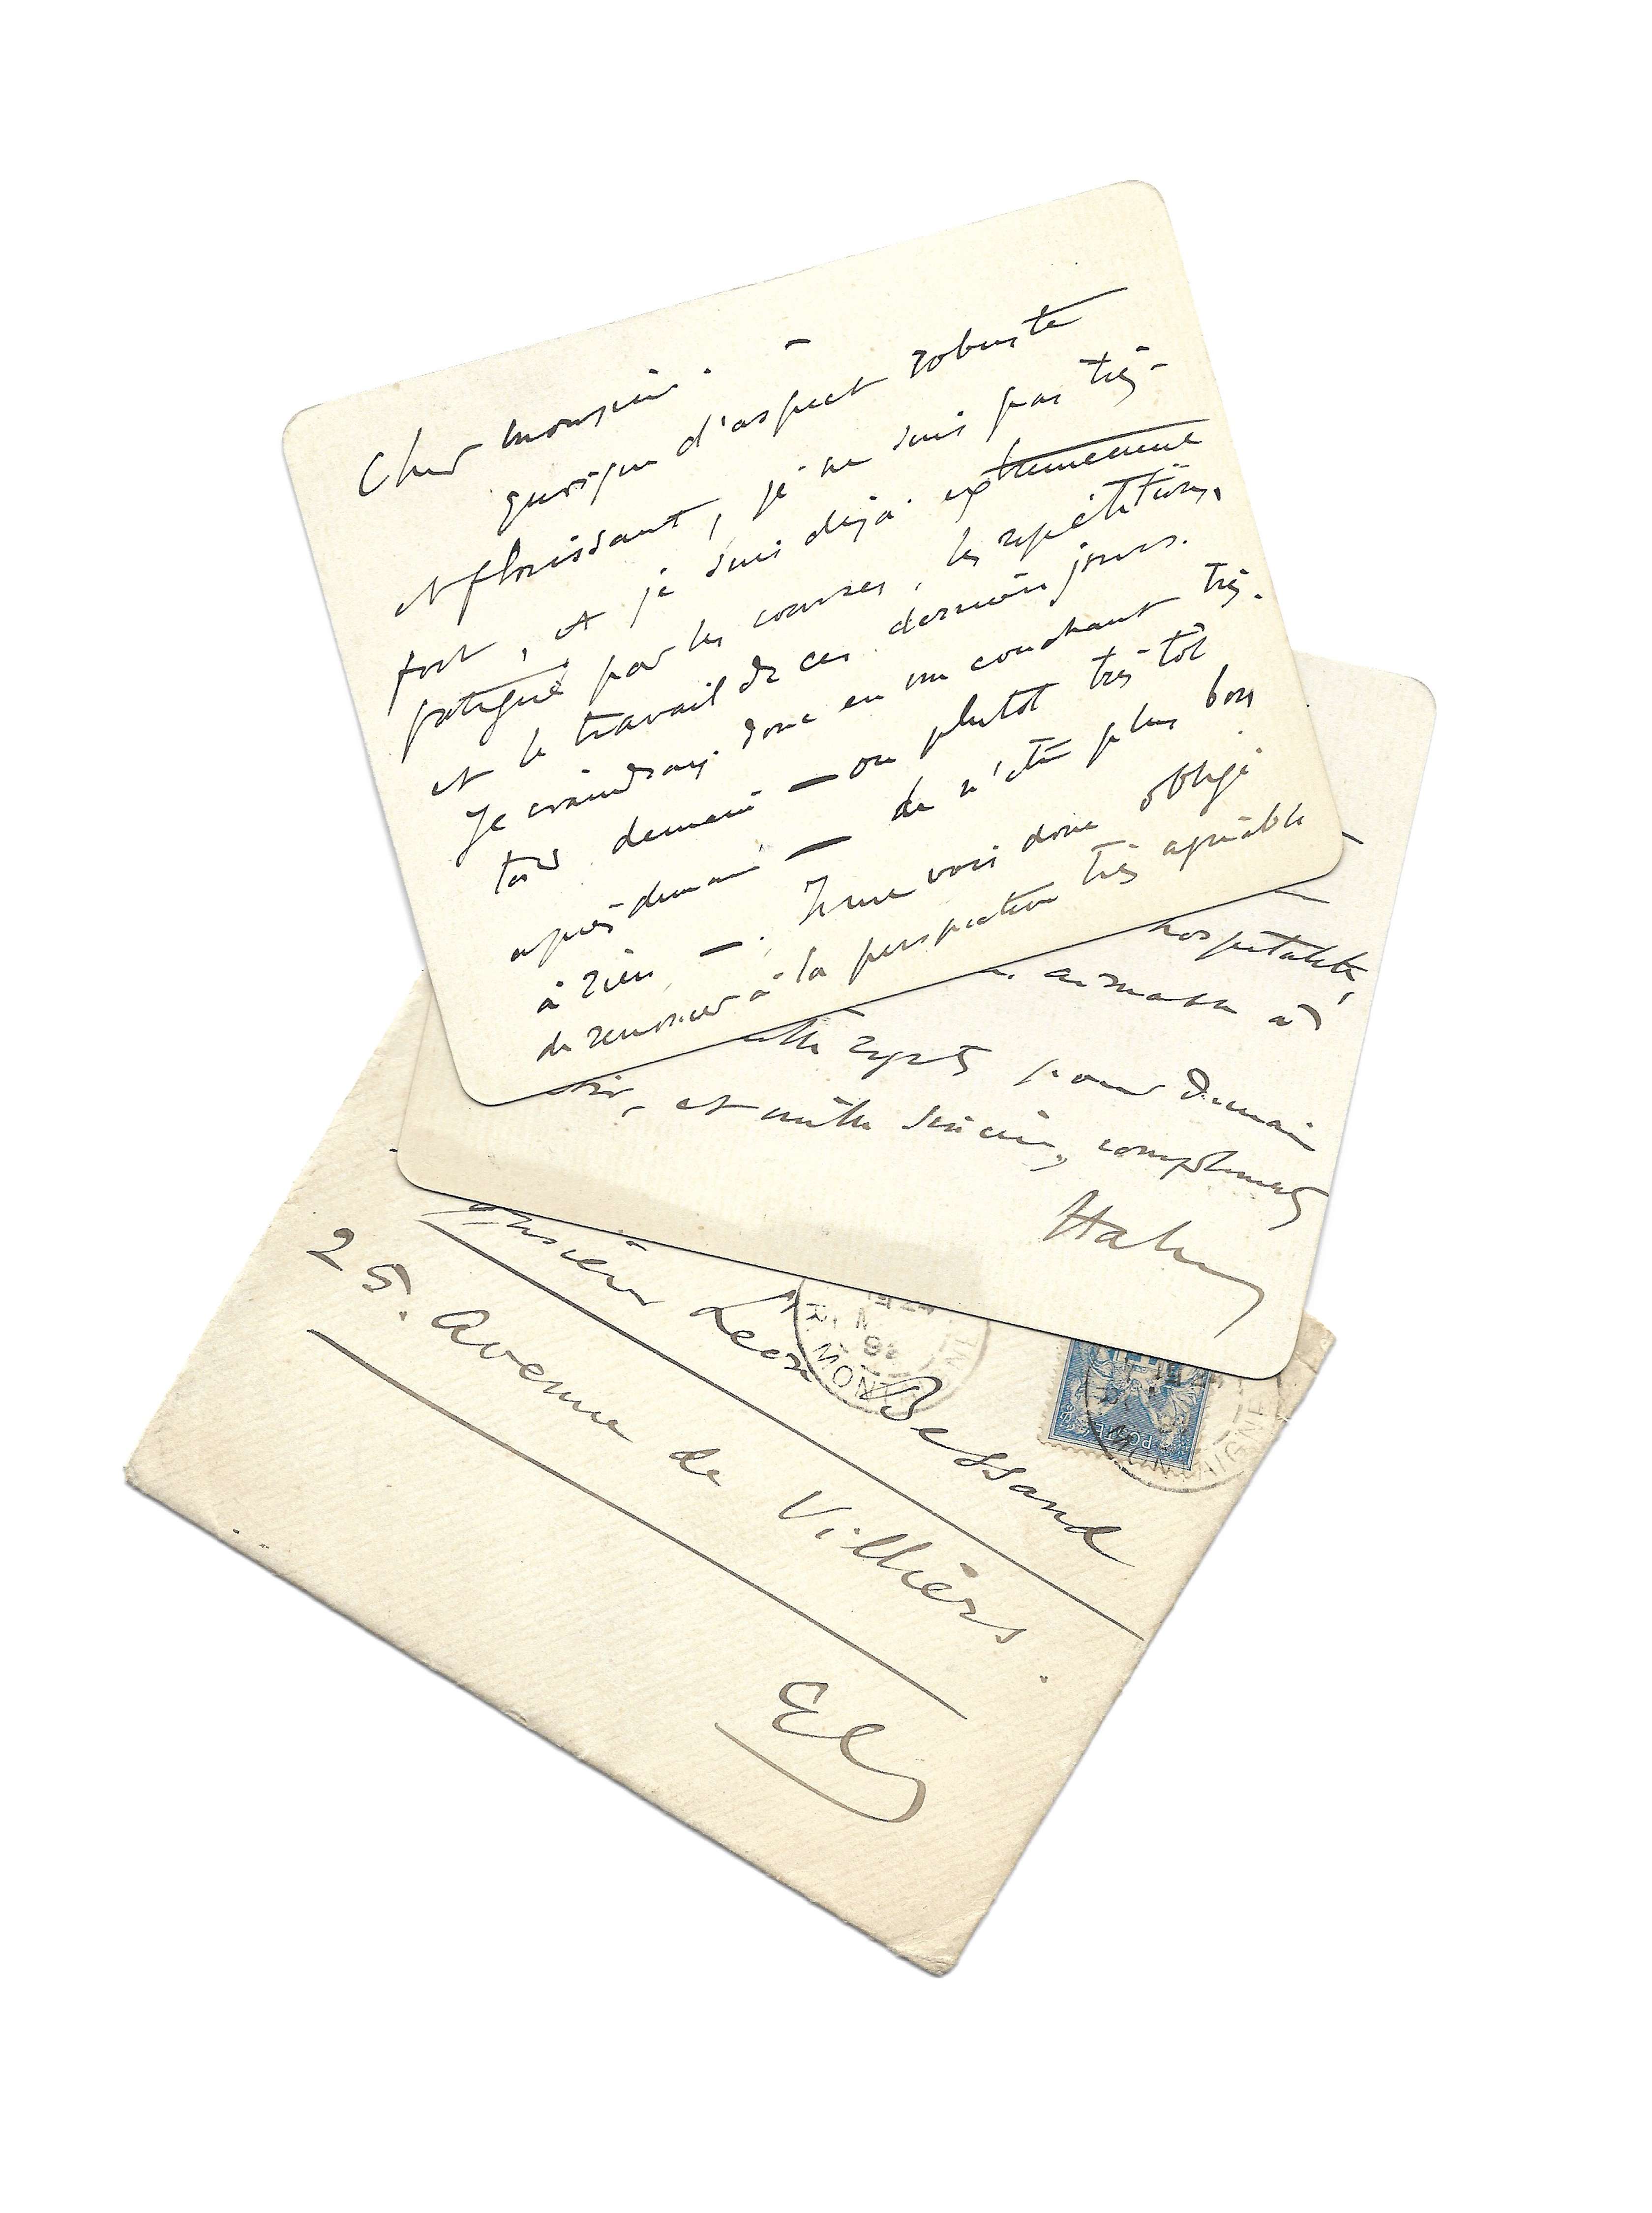 Cher Monsieur. —
quoique d'aspect robuste
et florissant, je ne suis pas très-
fort, et je suis déjà extrêmement
fatigué par les courses, les répétitions,
et le travail de ces derniers jours.
Je craindrais donc en me couchant très-
tard demain — ou plutôt très-tôt
après demain — de n'être plus bon
à rien —. Je me vois donc obligé
de renoncer à la perspective très agréable
hospitalité,
aimable à
mille regrets pour demain
soir, et mille sincères compliments
Hahn
Monsieur Léon Bessand
25. Avenue de Villiers.
EV
R. MONTAIGNE
POSTE
MONTAIGNE